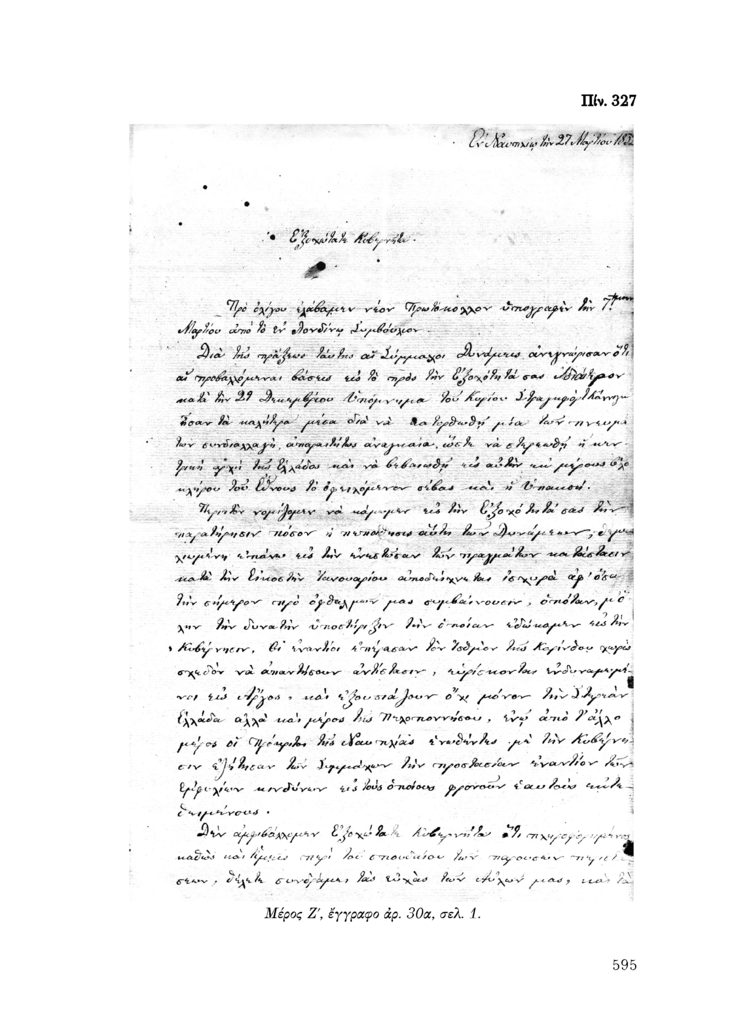 Πίν. 327
Ἐν Ναυπλίῳ τὴν 27 Μαρτίου 183
Ἐξοχώτατε Κυβερνῆτα.
Πρὸ ὀλίγου ἐλάβαμεν νέον Πρωτόκολλον ὑπογραφὲν τὴν 7ην
Μαρτίου ἀπὸ τὸ ἐν Λονδίνῳ Συμβούλιον.
Διὰ τῆς πράξεως ταύτης αἱ Σύμμαχοι Δυνάμεις ἀνεγνώρισαν ὅτι
αἱ προβαλλόμεναι βάσεις εἰς τὸ πρὸς τὴν Ἐξοχότητά σας
κατὰ τὴν 29 Δεκεμβρίου Ὑπόμνημα τοῦ Κυρίου Στραγφὸρτ Κάννιγγ
ἦσαν τὰ καλήτερα μέσα διὰ νὰ κατορθωθῇ μία τῶν πνευμά
των συνδιαλλαγή, ἀπαραιτήτως ἀναγκαία, ὥστε νὰ στερεωθῇ ἡ κεν
τρικὴ ἀρχὴ τῆς Ἑλλάδος καὶ νὰ βεβαιωθῇ εἰς αὐτὴν ἐκ μέρους ὁλο
κλήρου τοῦ Ἔθνους τὸ ὀφειλόμενον σέβας καὶ ἡ ὑπακοή.
Περιττὸν νομίζομεν νὰ κάμωμεν εἰς τὴν Ἐξοχότητά σας τὴν
παρατήρησιν πόσον ἡ πεποίθησις αὕτη τῶν Δυνάμεων, θεμε
λιωμένη ἐπάνω εἰς τὴν ἐνεστῶσαν τῶν πραγμάτων κατάστασιν
κατὰ τὴν Εἰκοστὴν Ἰανουαρίου ἀποδείχνεται ἰσχυρὰ ἀφ' ὅσα
τὴν σήμερον πρὸ ὀφθαλμῶν μας συμβαίνουσιν, ὁπόταν, μ' ὅ
λην τὴν δυνατὴν ὑποστήριξιν τὴν ὁποίαν ἐδώκαμεν εἰς τὴν
Κυβέρνησιν, Οἱ ἐναντίοι ἐπέρασαν τὸν Ἰσθμὸν τῆς Κορίνθου χωρὶς
σχεδὸν νὰ ἀπαντήσουν ἀντίστασιν, εὑρίσκονται ἐνδυναμωμέ
νοι εἰς Ἄργος, καὶ ἐξουσιάζουν ὄχι μόνον τὴν Στερεὰν
Ἑλλάδα ἀλλὰ καὶ μέρος τῆς Πελοποννήσου, ἐνῷ ἀπὸ τ' ἄλλο
μέρος οἱ Πρόκριτοι τῆς Ναυπλίας ἑνωθέντες μὲ τὴν Κυβέρνη
σιν ἐζήτησαν τῶν Συμμάχων τὴν προστασίαν ἐναντίον τῶν
ἐμφυλίων κινδύνων εἰς τοὺς ὁποίους φρονοῦν ἑαυτοὺς ἐκτε
θειμένους.
Δὲν ἀμφιβάλλομεν Ἐξοχώτατε Κυβερνῆτα ὅτι πληροφορημένος
καθὼς καὶ ἡμεῖς περὶ τοῦ σπουδαίου τῶν παρουσῶν περιστά
σεων, θέλετε συνδράμει τὰς εὐχὰς τῶν Αὐλῶν μας, καὶ τὰ
Μέρος Ζ′, ἔγγραφο ἀρ. 30α, σελ. 1.
595